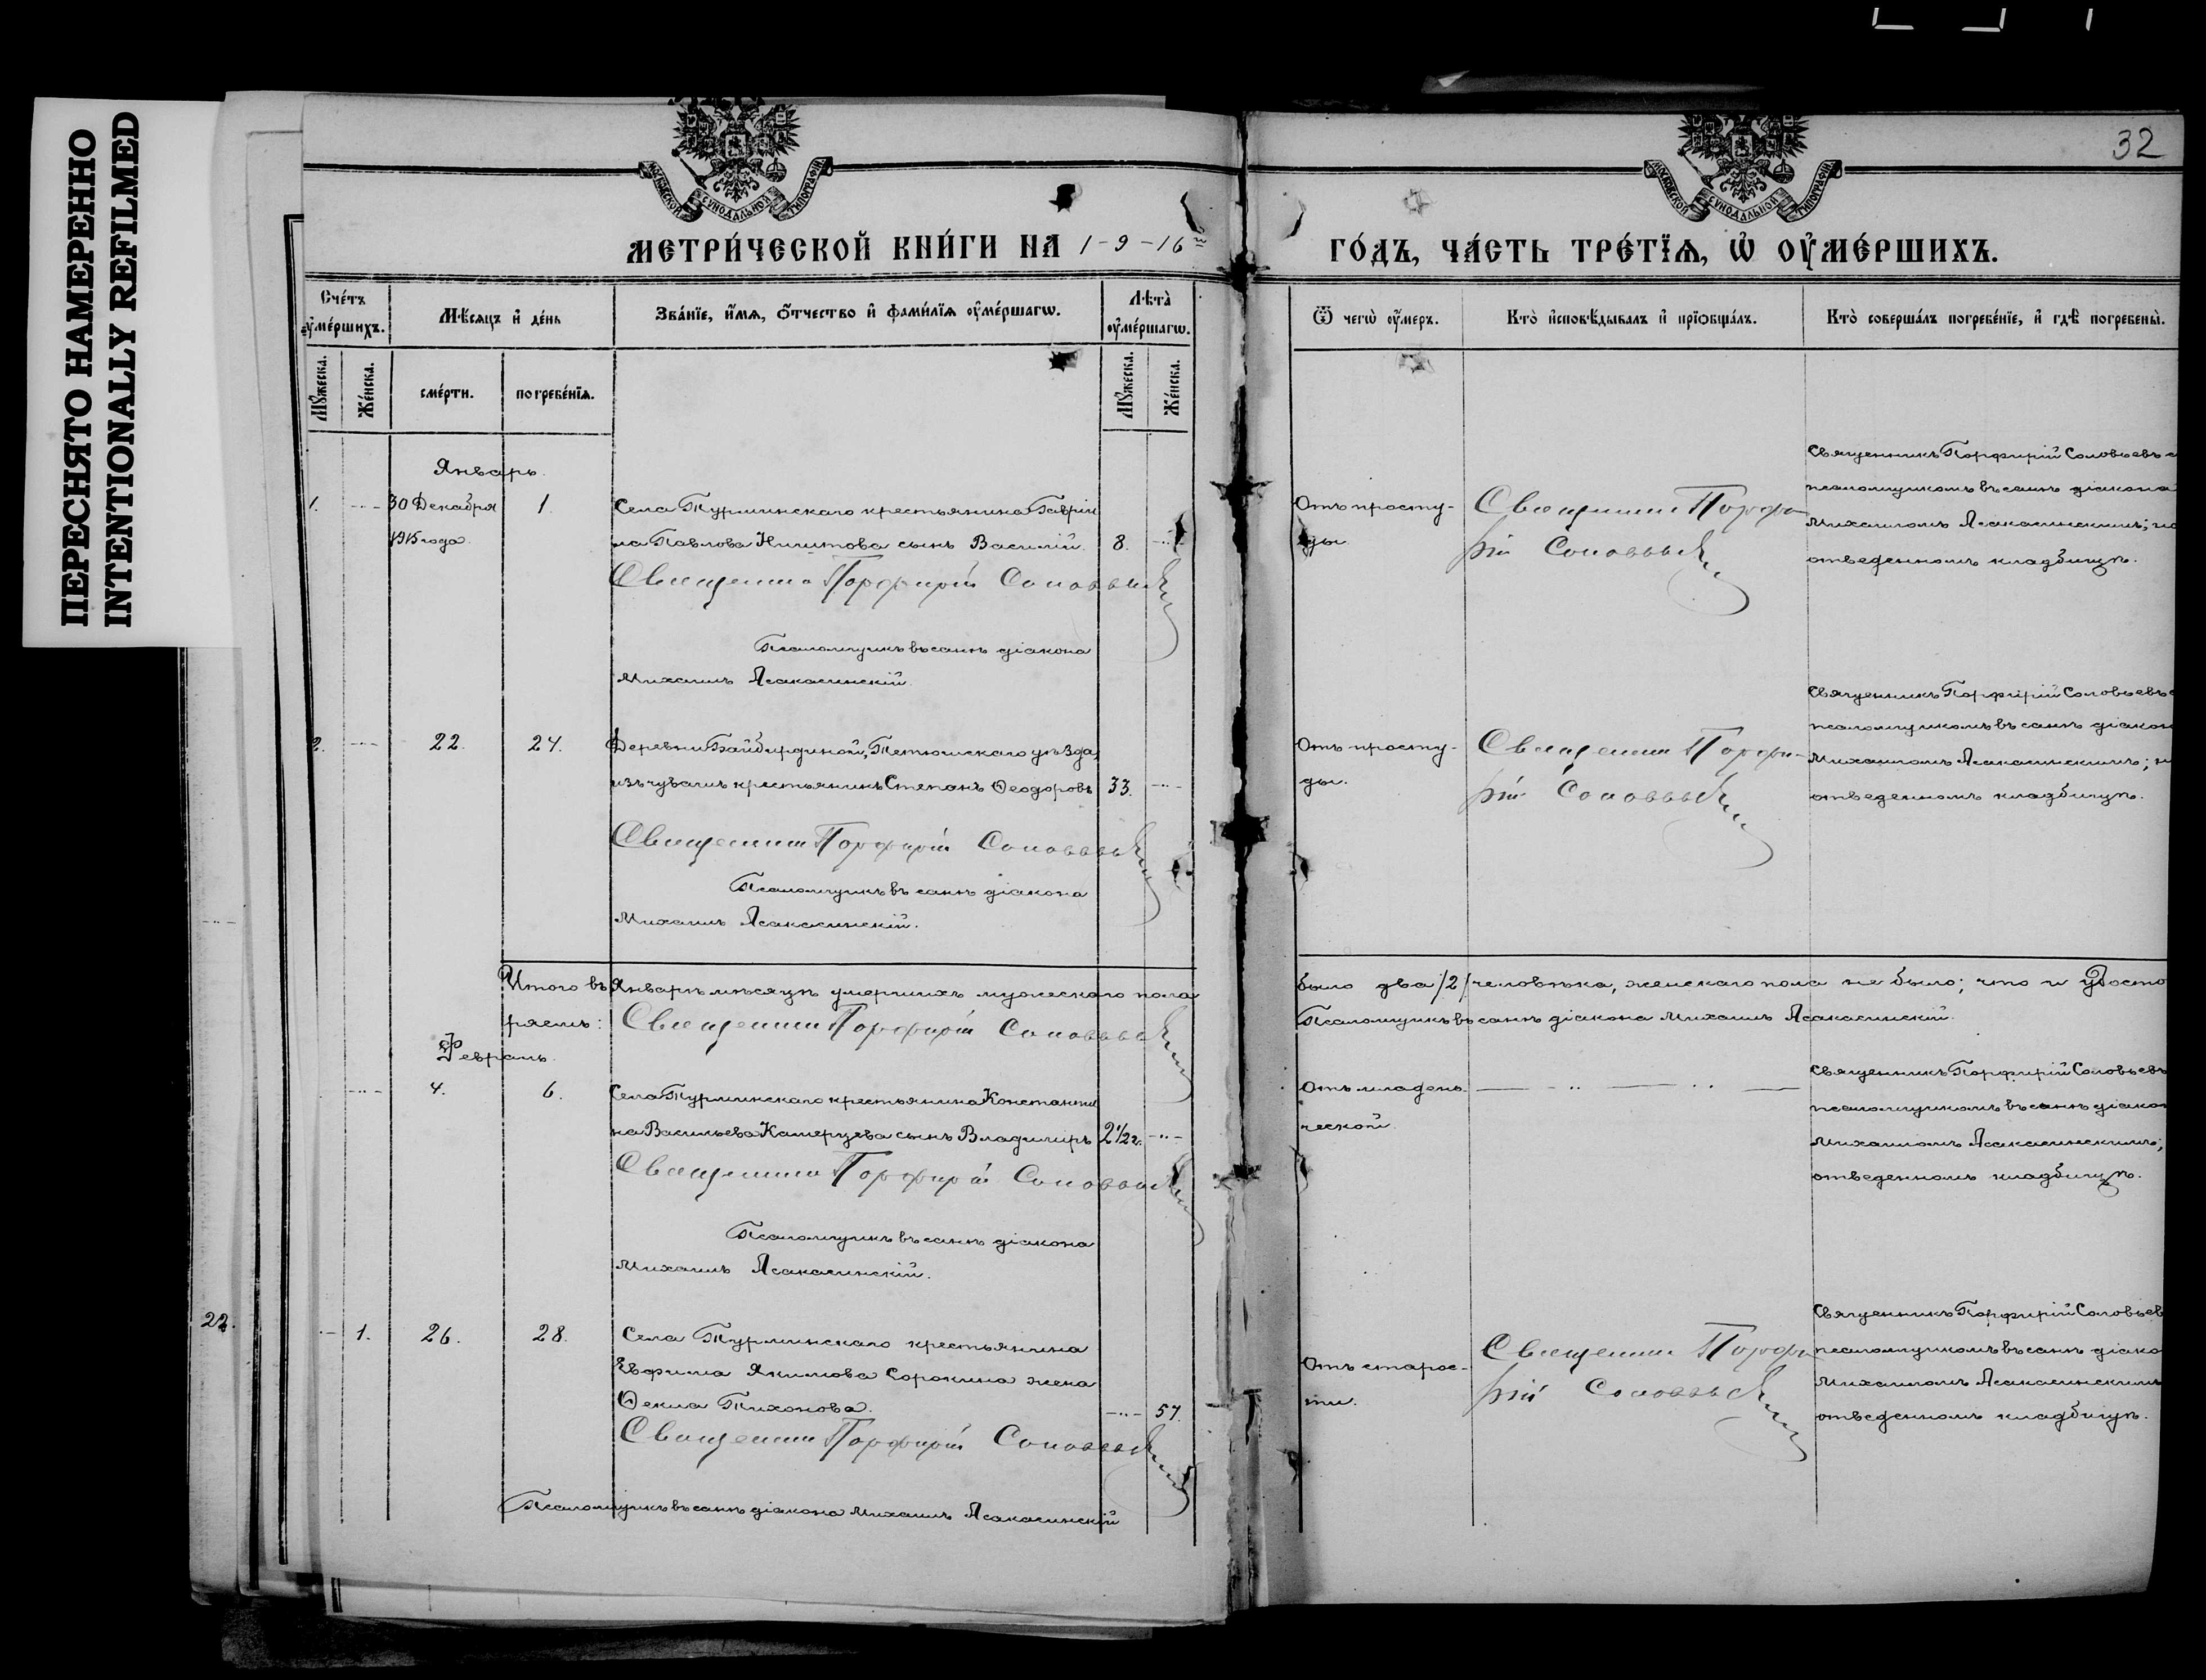 ПЕРЕСНЯТО НАМЕРЕННО
INTENTIONALLY REFILMED
32
МОСКОВСКОЙ СѴНОДАЛЬНОЙ ТИПОГРАФІИ
МОСКОВСКОЙ СѴНОДАЛЬНОЙ ТИПОГРАФІИ
МЕТРИ́ЧЕСКОЙ КНИ́ГИ НА 1-9-16 ГО́ДЪ, ЧА́СТЬ ТРЕ́ТЇѦ, Ѡ҆ ОУ҆МЕ́РШИХЪ.
Сче́тъ оу҆ме́ршихъ.
Мѣ́сѧцъ и҆ де́нь
Зва́нїе, и҆́мѧ, ѻ҆́тчество и҆ фами́лїѧ оу҆ме́ршагѡ.
Лѣ́та̀ оу҆ме́ршагѡ.
Ѿ чегѡ̀ оу҆́меръ.
Кто̀ и҆сповѣ́дывалъ и҆ прїѡбща́лъ.
Кто̀ соверша́лъ погребе́нїе, и҆ гдѣ̀ погребены̀.
Мꙋ́жеска.
Же́нска.
сме́рти.
погребе́нїѧ.
Мꙋ́жеска.
Же́нска.
Январь.
1. 30 Декабря 1. Села Турминскаго крестьянина Гаврiи
1915 года. ла Павлова Никитова сынъ Василiй. 8.
Священникъ Порфирiй Соловьевъ
Псаломщикъ въ санѣ дiакона
Михаилъ Асакасинскiй.
Отъ просту-
ды.
Священникъ Порфи-
рiй Соловьевъ
Священникъ Порфирiй Соловьевъ с
псаломщикомъ въ санѣ дiакона
Михаиломъ Асакасинскимъ; на
отведенномъ кладбищѣ.
2. 22. 24. Деревни Байбирдиной, Тетюшскаго уѣзда,
изъ чувашъ крестьянинъ Степанъ Ѳеодоровъ 33.
Священникъ Порфирiй Соловьевъ
Псаломщикъ въ санѣ дiакона
Михаилъ Асакасинскiй.
Отъ просту-
ды.
Священникъ Порфи-
рiй Соловьевъ
Священникъ Порфирiй Соловьевъ с
псаломщикомъ въ санѣ дiакон
Михаиломъ Асакасинскимъ; н
отведенномъ кладбищѣ.
Итого въ Январѣ мѣсяцѣ умершихъ мужескаго пола было два /2/ человѣка, женскаго пола не было; что и удосто
ряемъ: Священникъ Порфирiй Соловьевъ Псаломщикъ въ санѣ дiакона Михаилъ Асакасинскiй.
Февраль.
4. 6. Села Турминскаго крестьянина Константи
на Васильева Камерцева сынъ Владимиръ 2 1/2 г.
Священникъ Порфирiй Соловьевъ
Псаломщикъ въ санѣ дiакона
Михаилъ Асакасинскiй.
Отъ младен-
ческой.
Священникъ Порфирiй Соловьевъ
псаломщикомъ въ санѣ дiакон
Михаиломъ Асакасинскимъ;
отведенномъ кладбищѣ.
22.
1. 26. 28. Села Турминскаго крестьянина
Евфима Якимова Сорокина жена
Ѳекла Тихонова. 57.
Священникъ Порфирiй Соловьевъ
Псаломщикъ въ санѣ дiакона Михаилъ Асакасинскiй
Отъ старос-
ти.
Священникъ Порфи
рiй Соловьевъ
Священникъ Порфирiй Соловьев
псаломщикомъ въ санѣ дiако
Михаиломъ Асакасинскимъ
отведенномъ кладбищѣ.